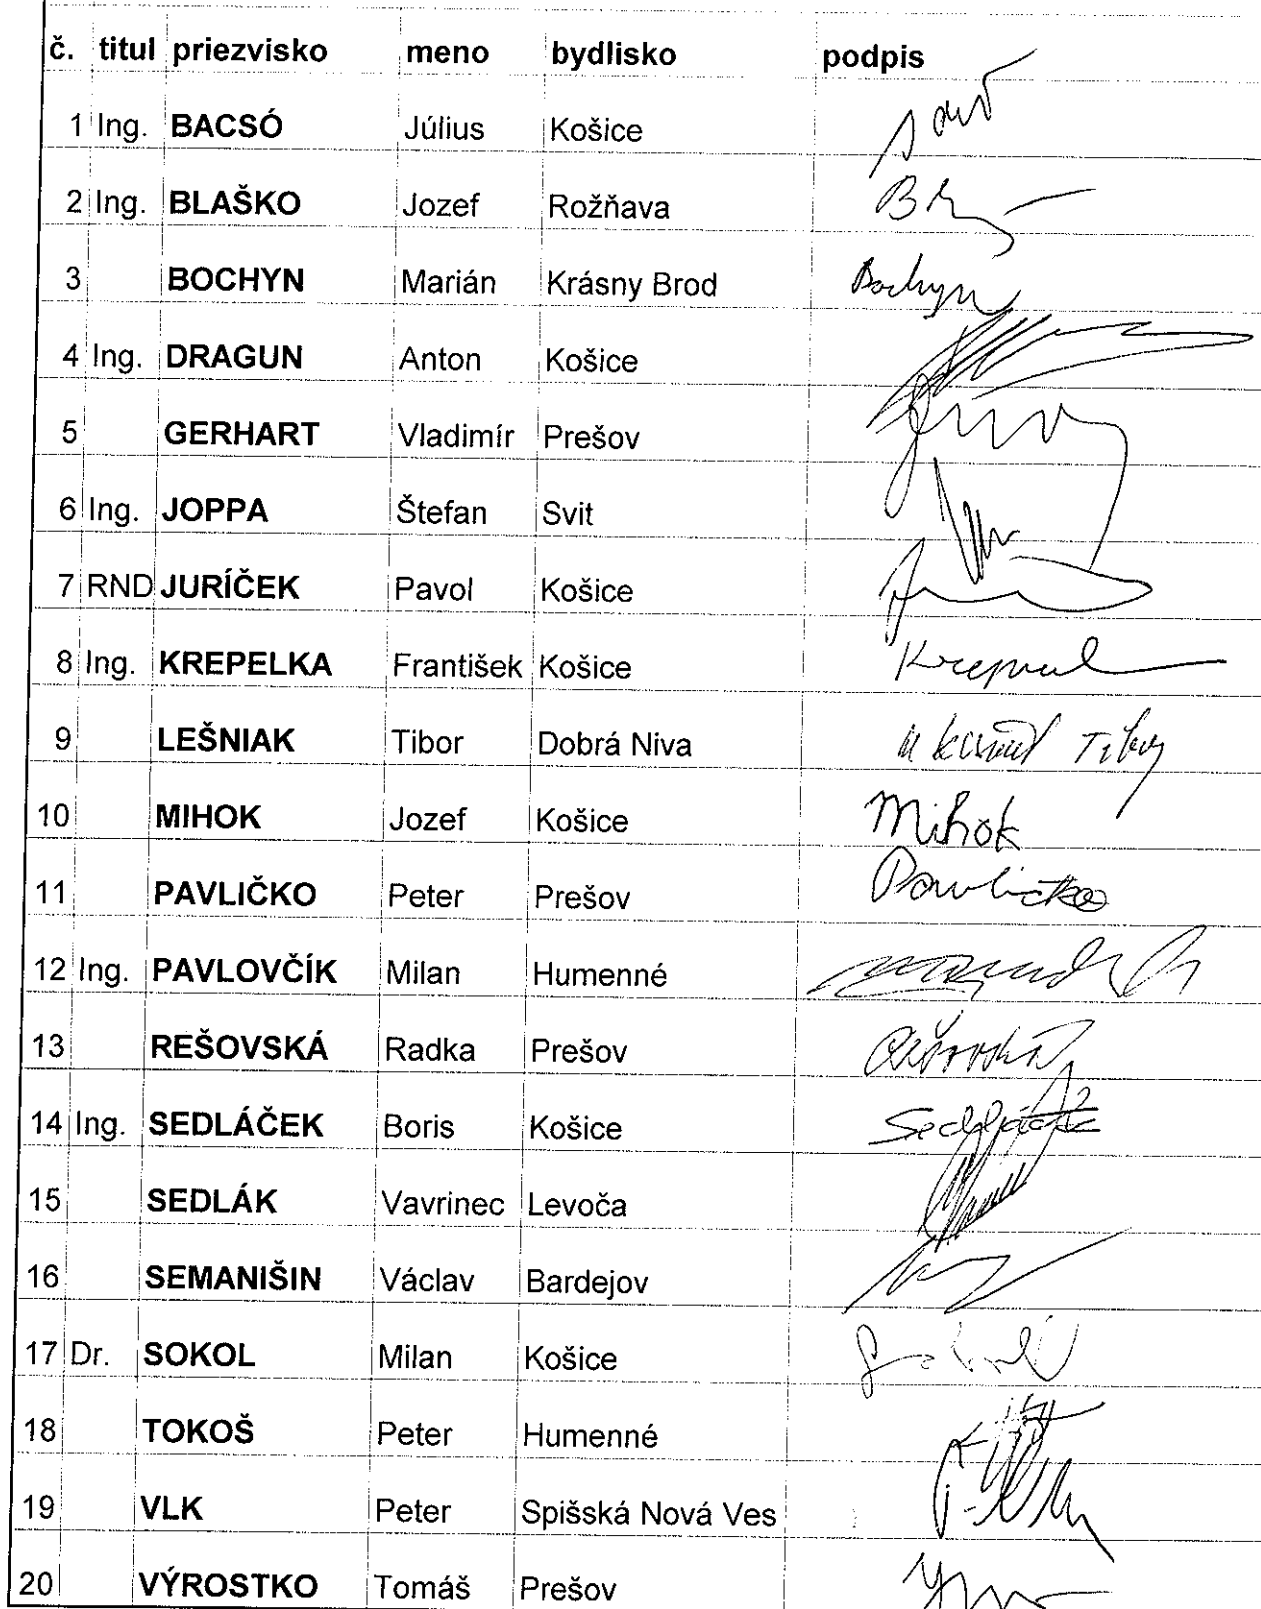 č. titul priezvisko meno bydlisko podpis
1 Ing. BACSÓ Július Košice
2 Ing. BLAŠKO Jozef Rožňava
3 BOCHYN Marián Krásny Brod Bochyn
4 Ing. DRAGUN Anton Košice
5 GERHART Vladimír Prešov
6 Ing. JOPPA Štefan Svit
7 RND JURÍČEK Pavol Košice
8 Ing. KREPELKA František Košice
9 LEŠNIAK Tibor Dobrá Niva Tibor
10 MIHOK Jozef Košice Mihok
11 PAVLIČKO Peter Prešov Pavličko
12 Ing. PAVLOVČÍK Milan Humenné
13 REŠOVSKÁ Radka Prešov Rešovská
14 Ing. SEDLÁČEK Boris Košice
15 SEDLÁK Vavrinec Levoča
16 SEMANIŠIN Václav Bardejov
17 Dr. SOKOL Milan Košice
18 TOKOŠ Peter Humenné
19 VLK Peter Spišská Nová Ves
20 VÝROSTKO Tomáš Prešov